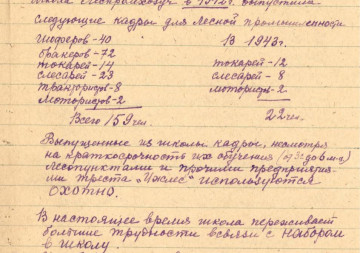 школа Леспромхозуч в 1942г. выпустила
следующие кадры для лесной промышленности
Шоферов-40 В 1943г.
бракеров-72
токарей-14 токарей-12
слесарей-23 слесарей-8
трактористов-8 мотористов-2
Мотористов-2
Всего 159 чел. 22 чел.
Выпущенные из школы кадры, несмотря
на краткосрочность их обучения
Лесопунктами и прочими предприятия-
ми треста используются
охотно.
В настоящее время школа переживает
большие трудности всвязи с набором
в школу.